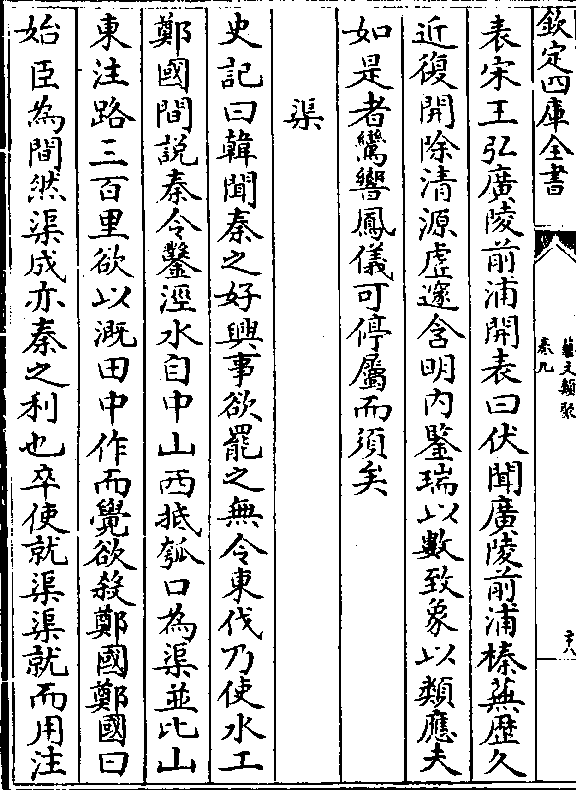 欽定四庫全書
藝文類聚
卷九
表宋王弘廣陵前浦開表曰伏聞廣陵前浦榛蕪歷久
近復開除清源虛邃含明內鑒瑞以數致象以類應夫
如是者鸞響鳳儀可停屬而須矣
渠
史記曰韓聞秦之好興事欲罷之無令東伐乃使水工
鄭國間說秦令鑿涇水自中山西抵瓠口為渠並北山
東注路三百里欲以溉田中作而覺欲殺鄭國鄭國曰
始臣為間然渠成亦秦之利也卒使就渠渠就而用注